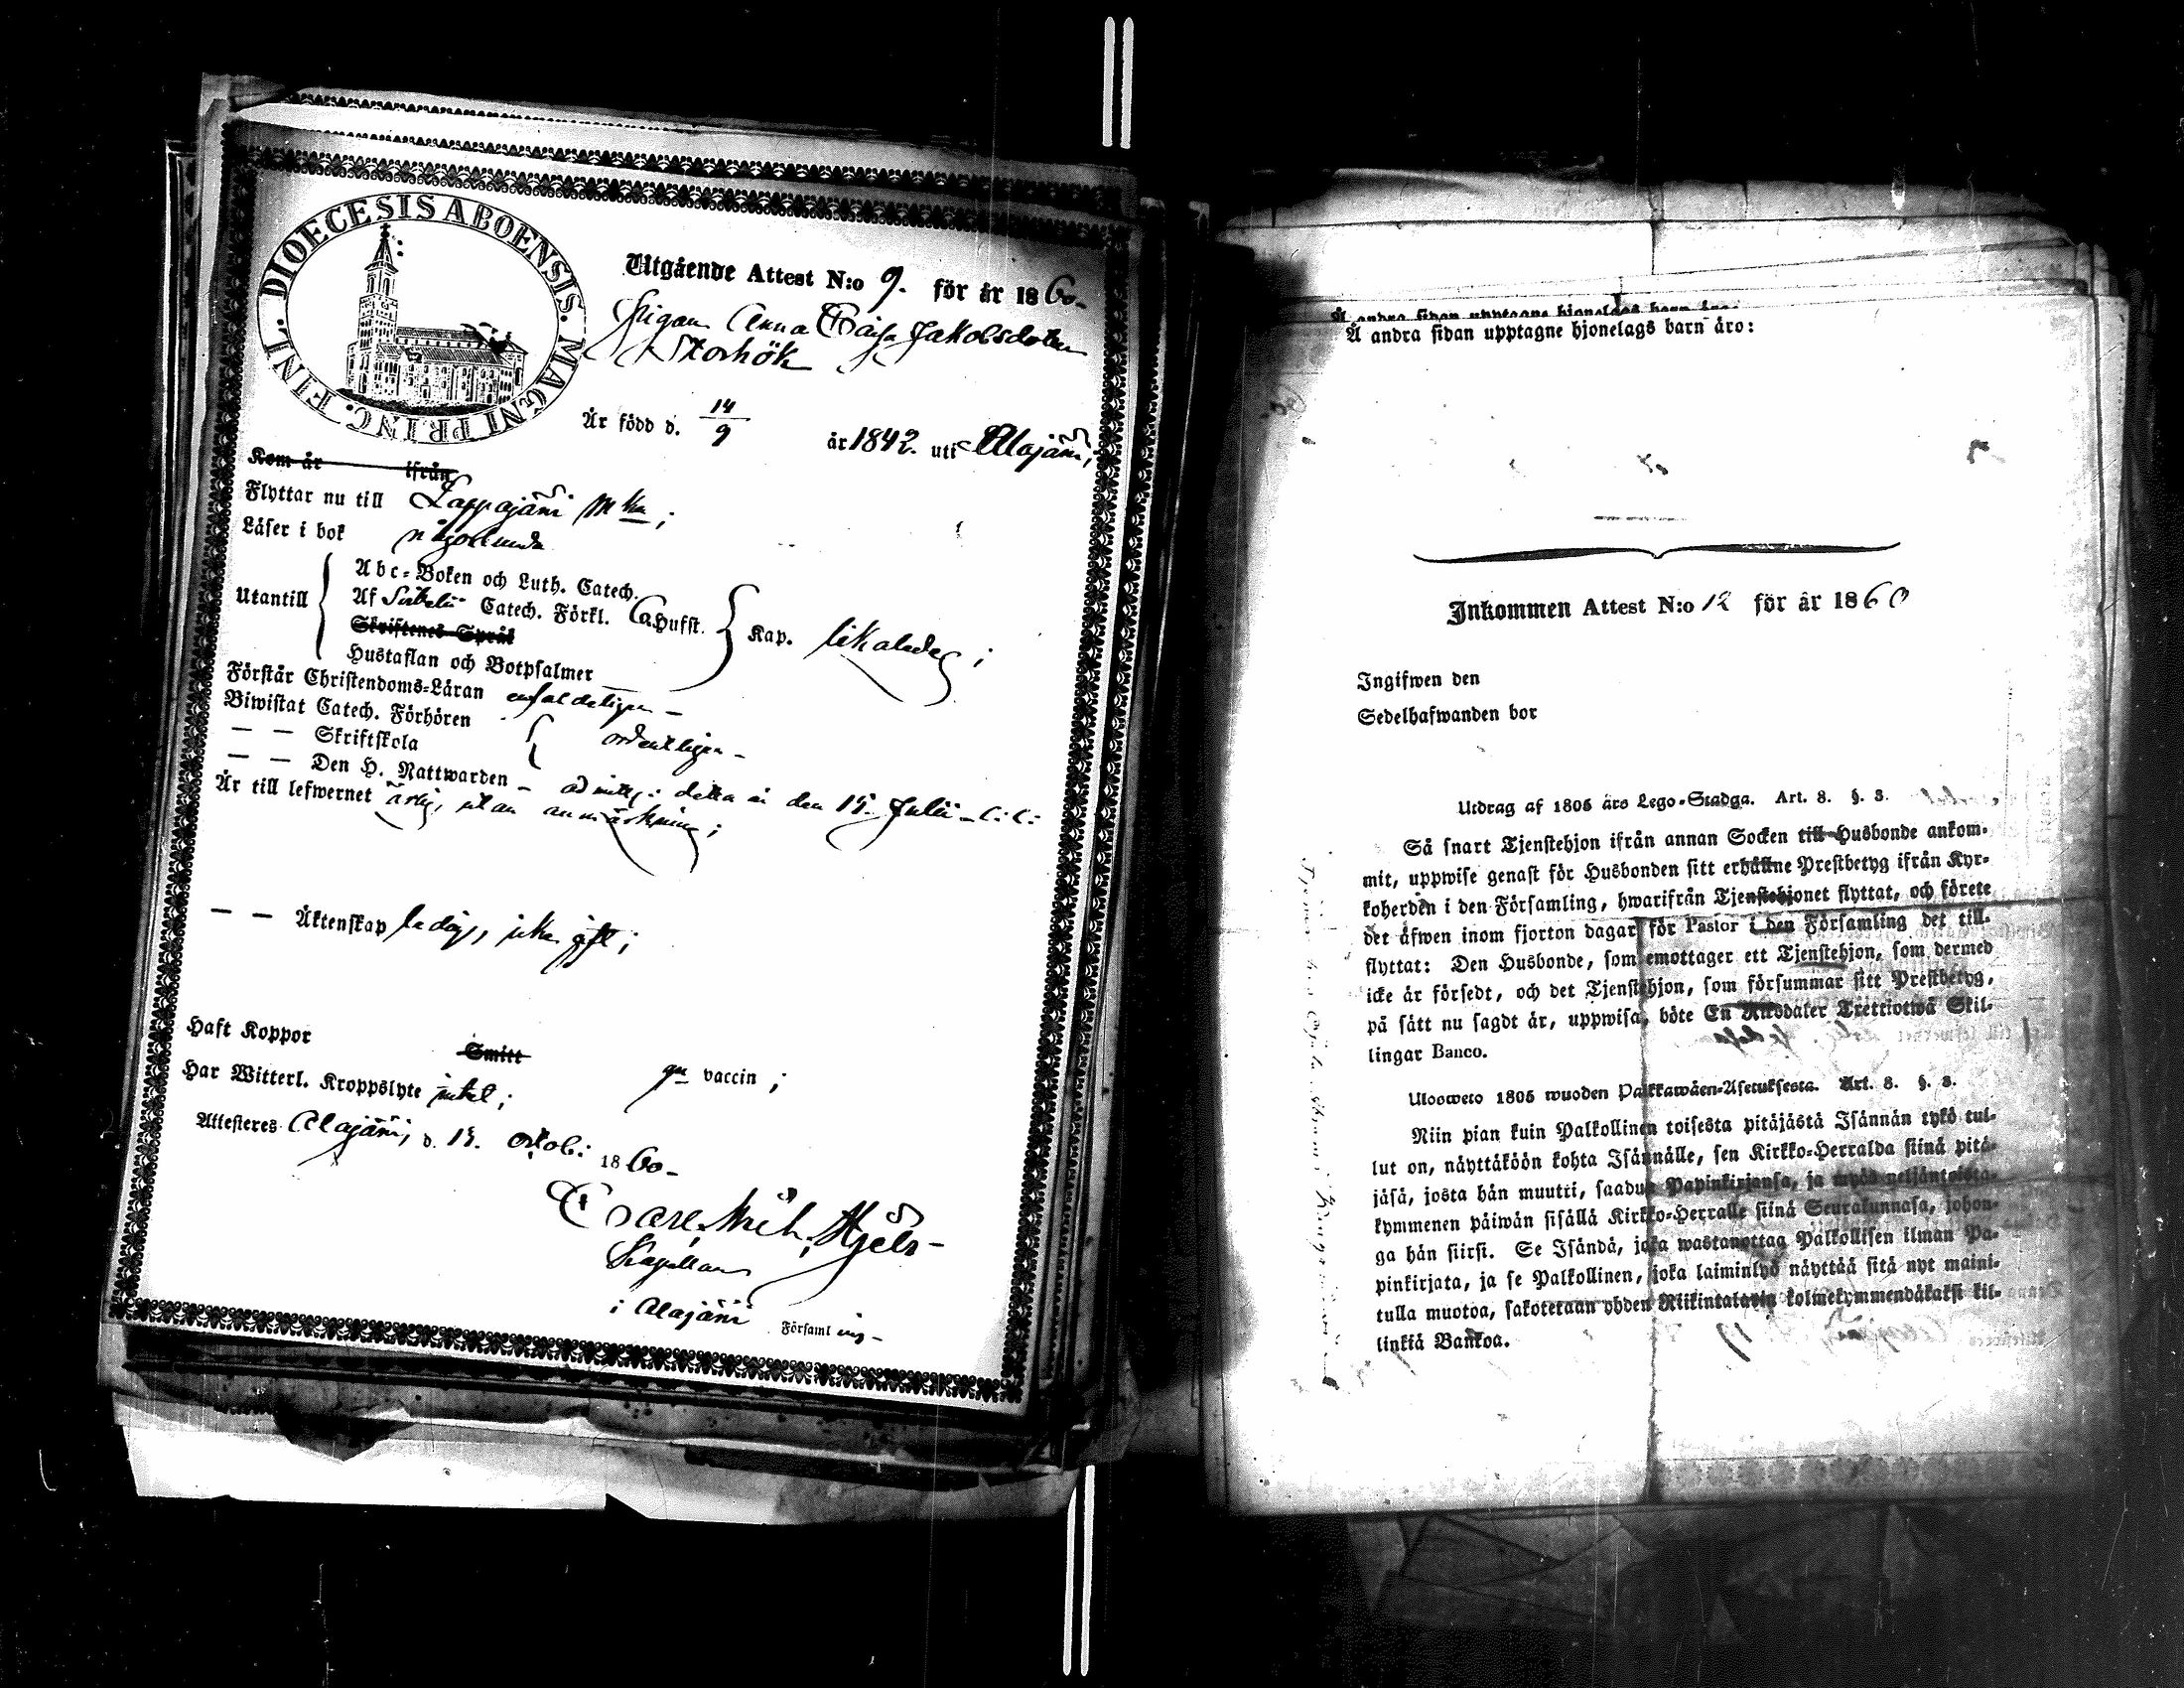 DIOECESIS ABOENSIS. MAGNI PRINC. FINL.
Utgående Attest N:o 9. för år 1860.
Pigan Anna Caisa Jakobsdotter
Storhök
Är född d. 14/9 år 1842. uti Alajärvi,
Kom år ifrån
Flyttar nu till Lappajärvi
Läser i bok någorlunda
Utantill
Abc-Boken och Luth. Catech.
Af Catech. Förkl. Hufst. Kap. likaledes;
Skriftenes Språk
Hustaflan och Botpsalmer
Förstår Christendoms-Läran enfaldeligen –
Biwistat Catech. Förhören
— — Skriftskola ordentligen –
— — Den H. Nattwarden – detta år den 15. Julii
Är till lefwernet ärlig, utan anmärkning;
— — Äktenskap ledig, icke gift;
Haft Koppor Smitt gm vaccin;
Har Witterl. Kroppslyte intet;
Attesteres Alajärvi, d. 15. Octob: 1860 –
Carl Mich. Hjelt –
Kapellan
i Alajärvi Församling –
Å andra sidan upptagne hjonelags barn äro:
Å andra sidan upptagne hjonelags barn äro:
Inkommen Attest N:o 12 för år 1860
Ingifwen den
Sedelhafwanden bor
Utdrag af 1805 års Lego-Stadga. Art. 8. §. 3.
Så snart Tjenstehjon ifrån annan Socken till Husbonde ankom-
mit, uppwise genast för Husbonden sitt erhållne Prestbetyg ifrån Kyr-
koherden i den Församling, hwarifrån Tjenstehjonet flyttat, och förete
det äfwen inom fjorton dagar för Pastor i den Församling det till-
flyttat: Den Husbonde, som emottager ett Tjenstehjon, som dermed
icke är försedt, och det Tjenstehjon, som försummar sitt Prestbetyg,
på sätt nu sagdt är, uppwisa, böte En Riksdaler Trettiotwå Skil-
lingar Banco.
Uloosweto 1805 wuoden Palkkawäen-Asetuksesta. Art. 8. §. 3.
Niin pian kuin Palkollinen toisesta pitäjästä Isännän tykö tul-
lut on, näyttäköön kohta Isännälle, sen Kirkko-Herralda siinä pitä-
jäsä, josta hän muutti, saadun Papinkirjansa, ja myös neljäntoista-
kymmenen päiwän sisällä Kirkko-Herralle siinä Seurakunnasa, johon-
ga hän siirsi. Se Isändä, joka wastanottaa Palkollisen ilman Pa-
pinkirjata, ja se Palkollinen, joka laiminlyö näyttää sitä nyt maini-
tulla muotoa, sakotetaan yhden Riikintalarin kolmekymmendäkaksi kil-
linkiä Bankoa.